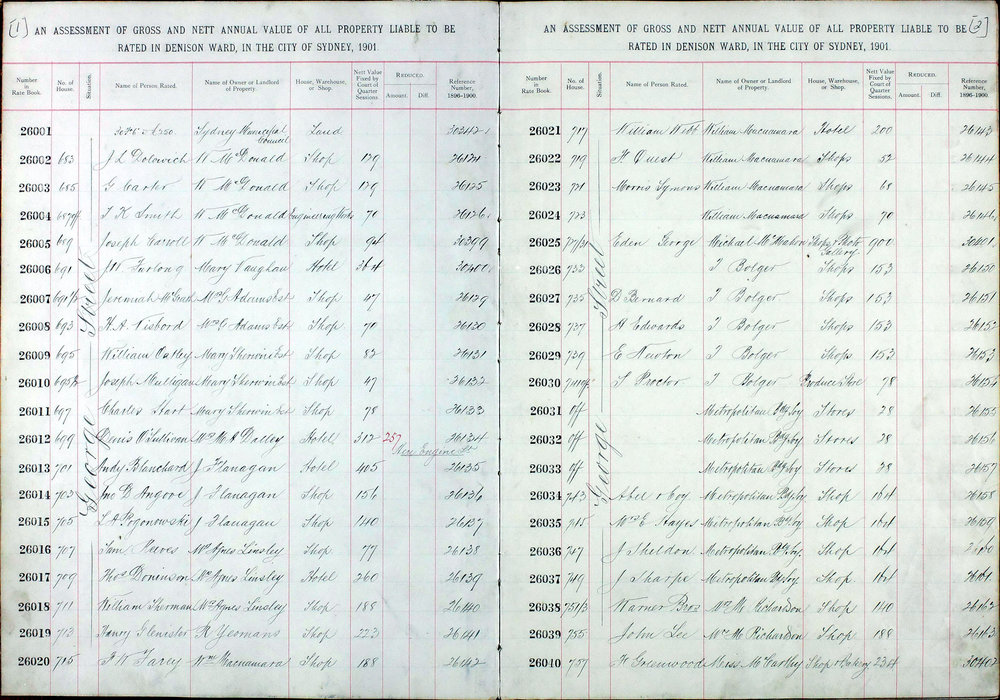 [1] AN ASSESSMENT OF GROSS AND NETT ANNUAL VALUE OF ALL PROPERTY LIABLE TO BE
RATED IN DENISON WARD, IN THE CITY OF SYDNEY, 1901.
Number in Rate Book. No. of House. Situation. Name of Person Rated. Name of Owner or Landlord of Property. House, Warehouse, or Shop. Nett Value Fixed by Court of Quarter Sessions. REDUCED. Amount. Diff. Reference Number, 1896-1900.
George Street
26001 Sydney Municipal Council Land 30242
26002 683 J L Dolowich W McDonald Shop 129 26124
26003 685 G Carter W McDonald Shop 129 26125
26004 687 off T K Smith W McDonald Engineering Works 70 26126
26005 689 Joseph Carroll W McDonald Shop 94 30399
26006 691 J W Furlong Mary Vaughan Hotel 364 30400
26007 691½ Jeremiah McGrath Mrs G Adams Est Shop 47 26129
26008 693 H. A. Nisbord Mrs G Adams Est Shop 70 26130
26009 695 William Oatley Mary Sherwin Est Shop 82 26131
26010 695½ Joseph Mulligan Mary Sherwin Est Shop 47 26132
26011 697 Charles Hart Mary Sherwin Est Shop 78 26133
26012 699 Denis O'Sullivan Mrs M A Dalley Hotel 312 257 26134
New Engine St
26013 701 Andy Blanchard J Flanagan Hotel 405 26135
26014 703 Jno D Angove J Flanagan Shop 156 26136
26015 705 L A Pogonowski J Flanagan Shop 140 26137
26016 707 Sam Reeves Mrs Agnes Linsley Shop 77 26138
26017 709 Thos Doninson Mrs Agnes Linsley Hotel 260 26139
26018 711 William Sherman Mrs Agnes Linsley Shop 188 26140
26019 713 Henry Glenister R Yeomans Shop 223 26141
26020 715 F W Farey Wm Macnamara Shop 188 26142
[2] AN ASSESSMENT OF GROSS AND NETT ANNUAL VALUE OF ALL PROPERTY LIABLE TO BE
RATED IN DENISON WARD, IN THE CITY OF SYDNEY, 1901.
Number in Rate Book. No. of House. Situation. Name of Person Rated. Name of Owner or Landlord of Property. House, Warehouse, or Shop. Nett Value Fixed by Court of Quarter Sessions. REDUCED. Amount. Diff. Reference Number, 1896-1900.
George Street
26021 717 William Webb William Macnamara Hotel 200 26143
26022 719 H Quest William Macnamara Shops 52 26144
26023 721 Morris Symons William Macnamara Shops 68 26145
26024 723 William Macnamara Shops 70 26146
26025 727/31 Eden George Michael McMahon Shops & Photo Gallery 900 30401
26026 733 T Bolger Shops 153 26150
26027 735 D Bernard T Bolger Shops 153 26151
26028 737 H Edwards T Bolger Shops 153 26152
26029 739 E Newton T Bolger Shops 153 26153
26030 S Proctor T Bolger Produce Store 78
26031 Off Metropolitan Stores 28 26155
26032 Off Metropolitan Stores 28 26156
26033 Off Metropolitan Stores 28 26157
26034 743 Abel & Coy. Metropolitan Shop 164 26158
26035 745 Mrs E Hayes Metropolitan Shop 164 26159
26036 747 J Sheldon Metropolitan Shop 164 26160
26037 749 J Sharpe Metropolitan Shop 164 26161
26038 751/3 Warner Bros Mrs M Richardson Shop 140 26162
26039 755 John Lee Mrs M Richardson Shop 188 26163
26040 757 H Greenwood Miss McCarthy Shop & Bakery 234 30402